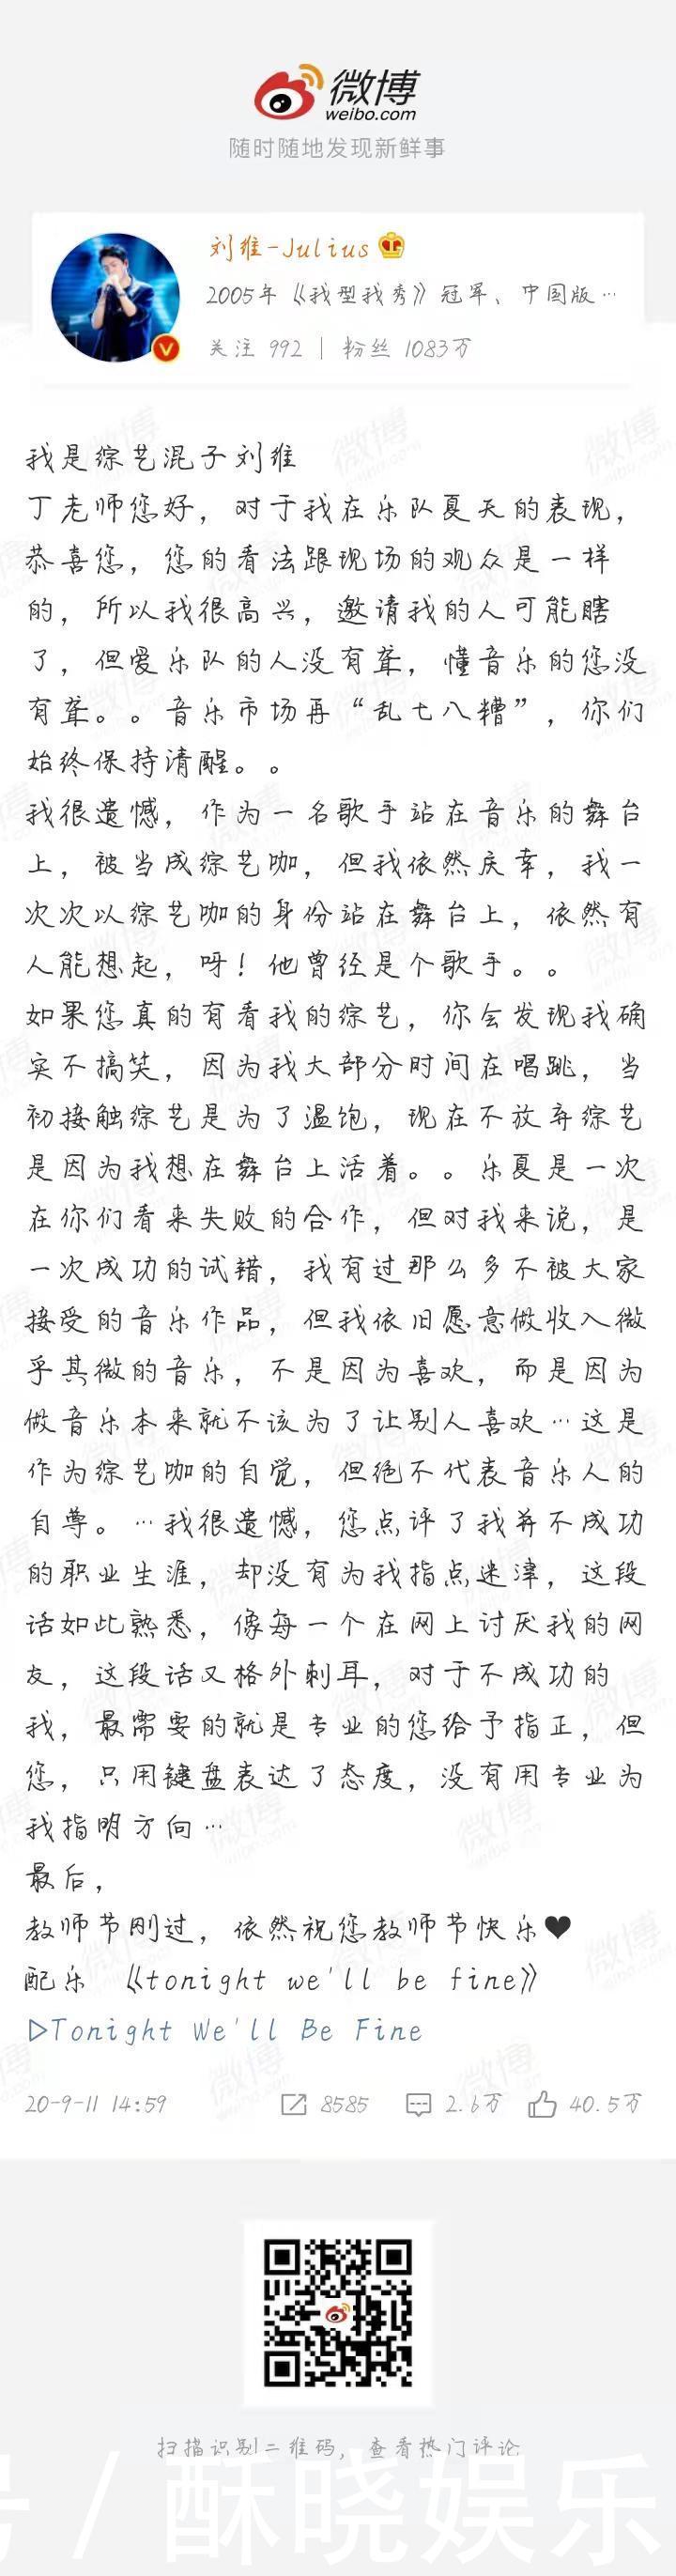 微博
weibo.com
随时随地发现新鲜事
刘维-Julius
2005年《我型我秀》冠军、中国版…
关注 992 | 粉丝 1083万
我是综艺混子刘维
丁老师您好，对于我在乐队夏天的表现，
恭喜您，您的看法跟现场的观众是一样
的，所以我很高兴，邀请我的人可能瞎
了，但爱乐队的人没有聋，懂音乐的您没
有聋。。音乐市场再“乱七八糟”，你们
始终保持清醒。。
我很遗憾，作为一名歌手站在音乐的舞台
上，被当成综艺咖，但我依然庆幸，我一
次次以综艺咖的身份站在舞台上，依然有
人能想起，呀！他曾经是个歌手。。
如果您真的有看我的综艺，你会发现我确
实不搞笑，因为我大部分时间在唱跳，当
初接触综艺是为了温饱，现在不放弃综艺
是因为我想在舞台上活着。。乐夏是一次
在你们看来失败的合作，但对我来说，是
一次成功的试错，我有过那么多不被大家
接受的音乐作品，但我依旧愿意做收入微
乎其微的音乐，不是因为喜欢，而是因为
做音乐本来就不该为了让别人喜欢…这是
作为综艺咖的自觉，但绝不代表音乐人的
自尊。…我很遗憾，您点评了我并不成功
的职业生涯，却没有为我指点迷津，这段
话如此熟悉，像每一个在网上讨厌我的网
友，这段话又格外刺耳，对于不成功的
我，最需要的就是专业的您给予指正，但
您，只用键盘表达了态度，没有用专业为
我指明方向…
最后，
教师节刚过，依然祝您教师节快乐❤
配乐 《tonight we'll be fine》
▷Tonight We'll Be Fine
20-9-11 14:59 8585 2.6万 40.5万
扫描识别二维码，查看热门评论
号/酥晓娱乐